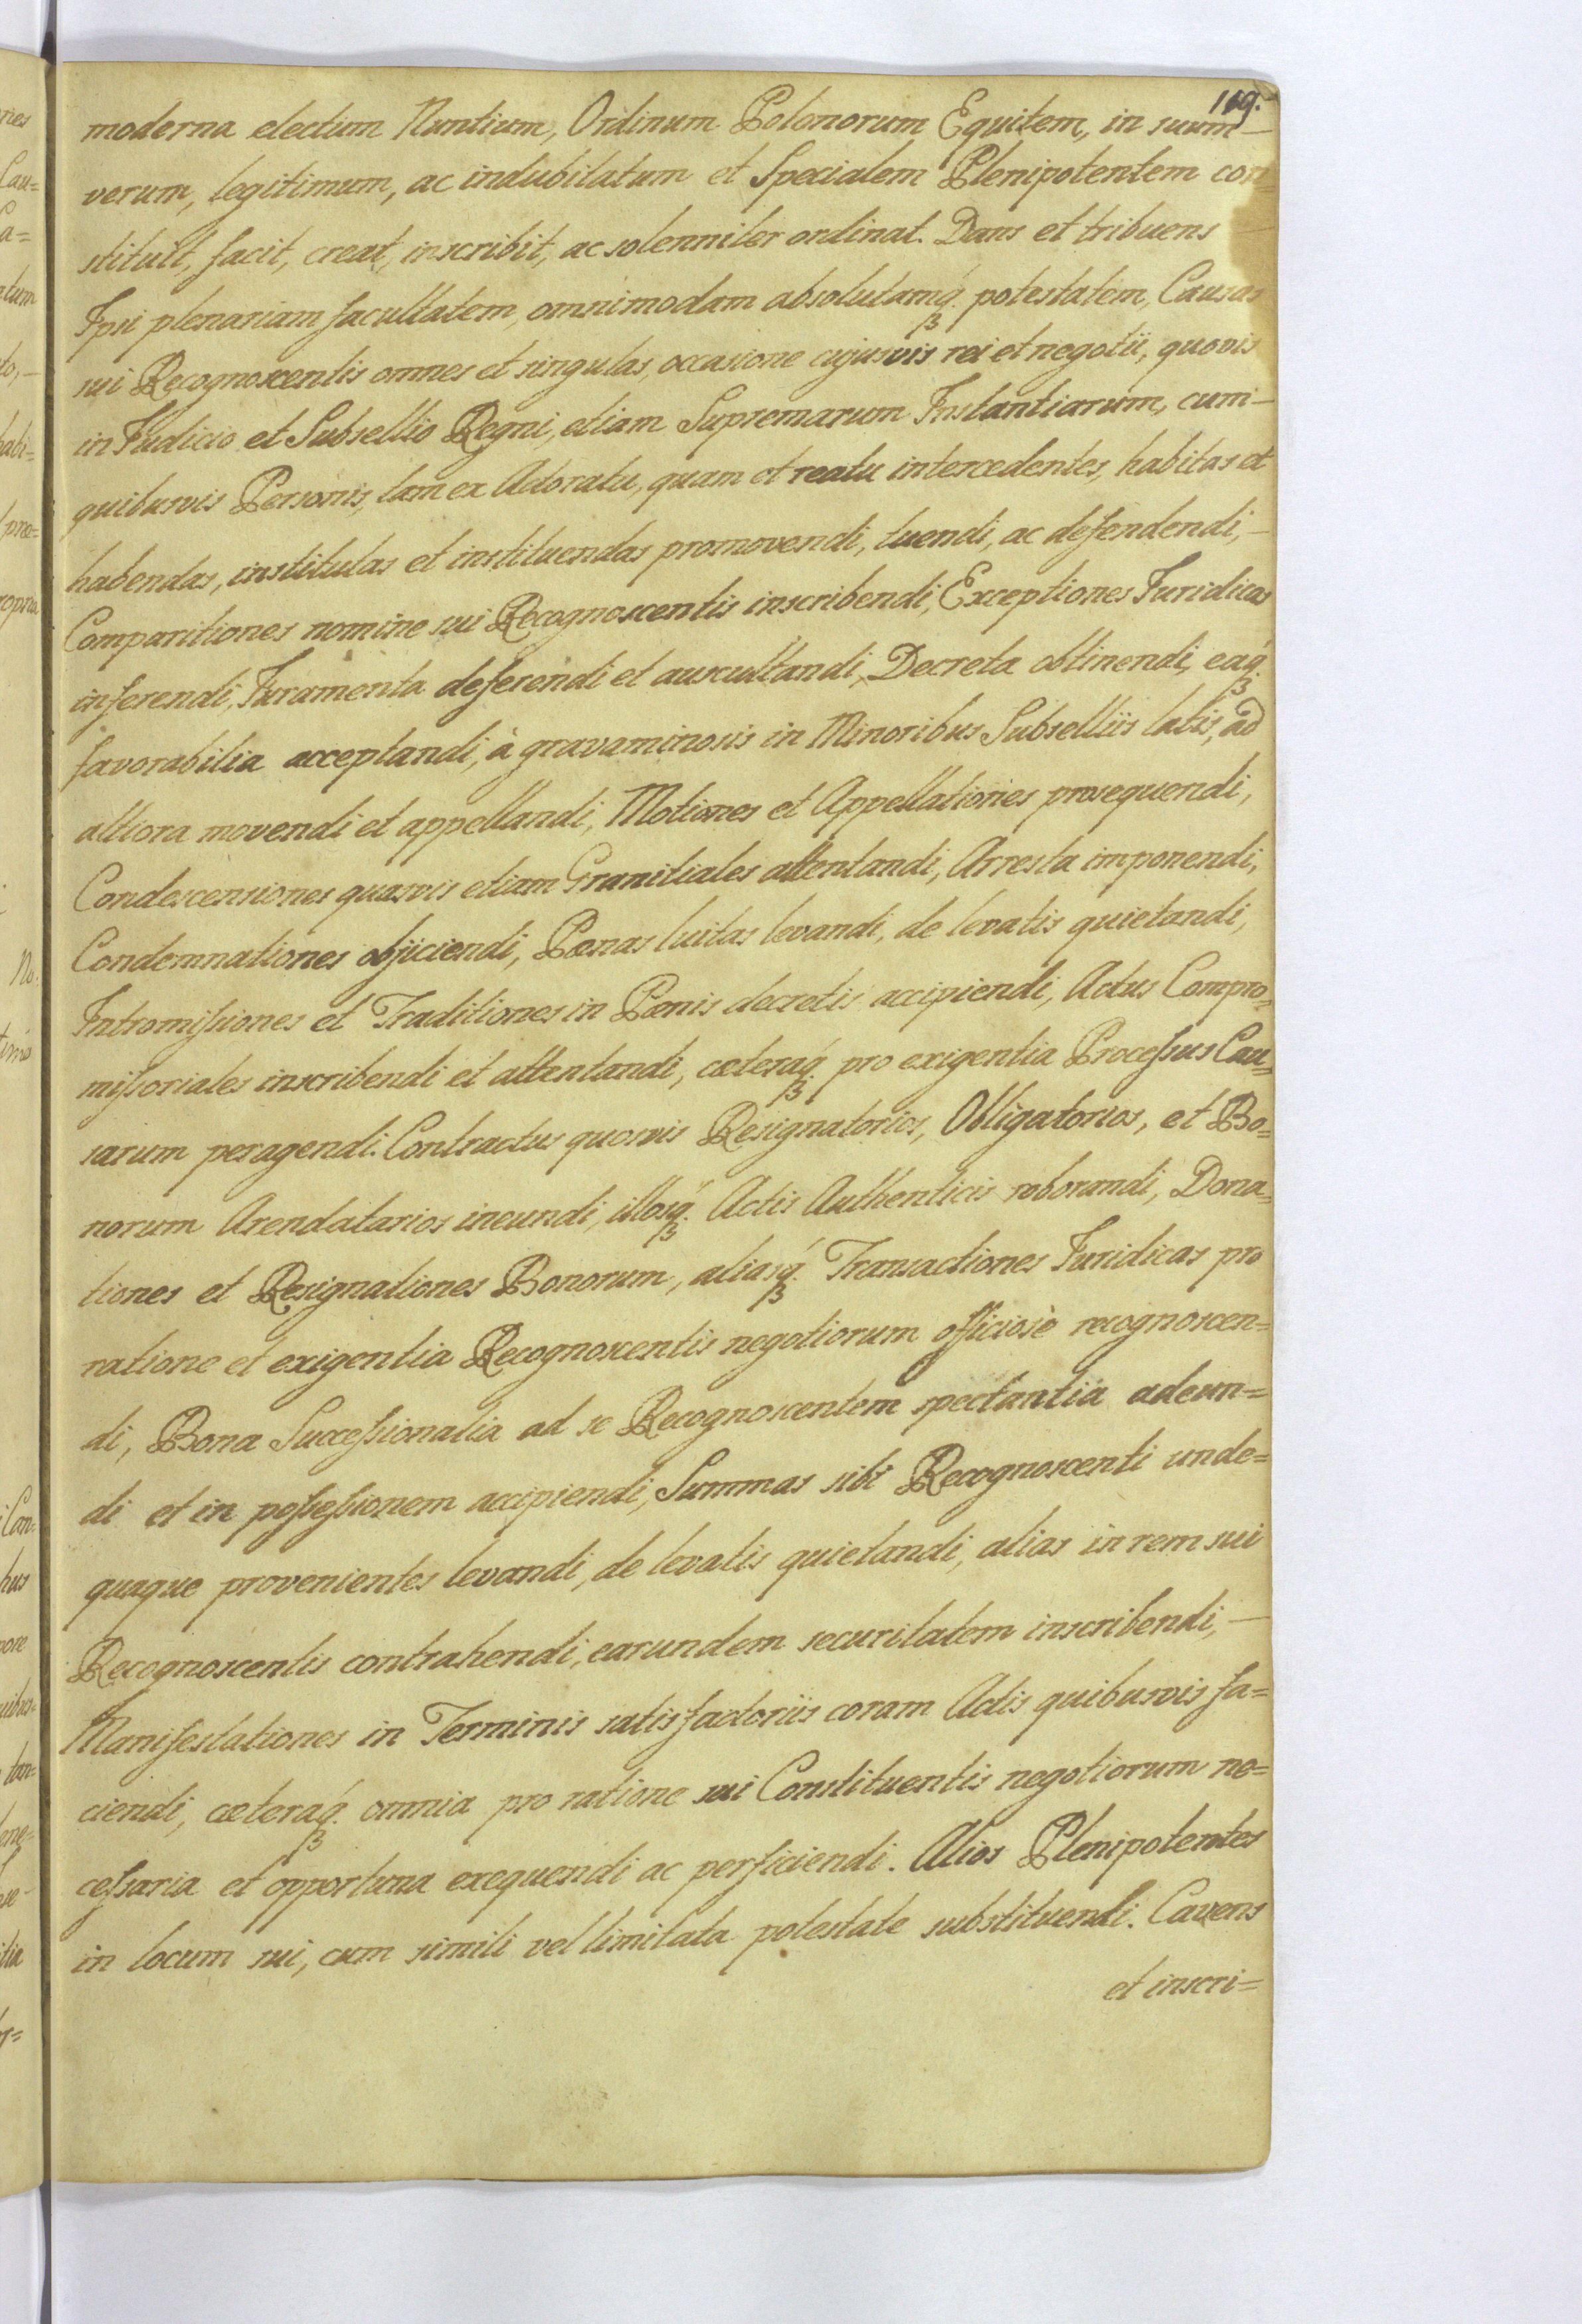 119.
moderna electum Nuntium, Ordinum Polonorum Equitem, in suum-
verum, legitimum, ac indubitatum et Specialem Plenipotentem con=
stituit, facit, creat, inscribit, ac solenniter ordinat. Dans et tribuens
Ipsi plenariam facultatem, omnimodam absolutamq́ꝫ. potestatem, Causas
sui Recognoscentis omnes et singulas, occasione cujusvis rei et negotii, quovis
in Judicio et Subsellio Regni, etiam Supremarum Instantiarum, cum-
quibusvis Personis, tam ex Actoratu, quam et reatu intercedentes, habitas et
habendas, institutas et instituendas promovendi, tuendi, ac defendendi,-
Comparitiones nomine sui Recognoscentis inscribendi, Exceptiones Juridicas
inferendi, Juramenta deferendi et auscultandi, Decreta obtinendi, eaq́ꝫ.
favorabilia acceptandi, à gravaminosis in Minoribus Subselliis latis, ad
altiora movendi et appellandi, Motiones et Appellationes prosequendi,
Condescensiones quasvis etiam Granitiales attentandi, Arresta imponendi,
Condemnationes objiciendi, Pœnas luitas levandi, de levatis quietandi,
Intromiſsiones et Traditiones in Pœnis decretis accipiendi, Actus Compro=
miſsoriales inscribendi et attentandi, cæteraq́ꝫ. pro exigentia Proceſsus Cau=
sarum peragendi. Contractus quosvis Resignatorios, Obligatorios, et Bo=
norum Arendatarios ineundi, illosq́ꝫ. Actis Authenticis roborandi, Dona=
tiones et Resignationes Bonorum, aliasq́ꝫ. Transactiones Juridicas pro
ratione et exigentia Recognoscentis negotiorum officiosè recognoscen=
di, Bona Succeſsionalia ad se Recognoscentem spectantia adeun=
di et in poſseſsionem accipiendi, Summas sibi Recognoscenti unde=
quaque provenientes levandi, de levatis quietandi, alias in rem sui
Recognoscentis contrahendi, earundem securitatem inscribendi,-
Manifestationes in Terminis satisfactoriis coram Actis quibusvis fa=
ciendi, cæteraq́ꝫ. omnia pro ratione sui Constituentis negotiorum ne=
ceſsaria et opportuna exequendi ac perficiendi. Alios Plenipotentes
in locum sui, cum simili vel limitata potestate substituendi. Cavens
et inscri=